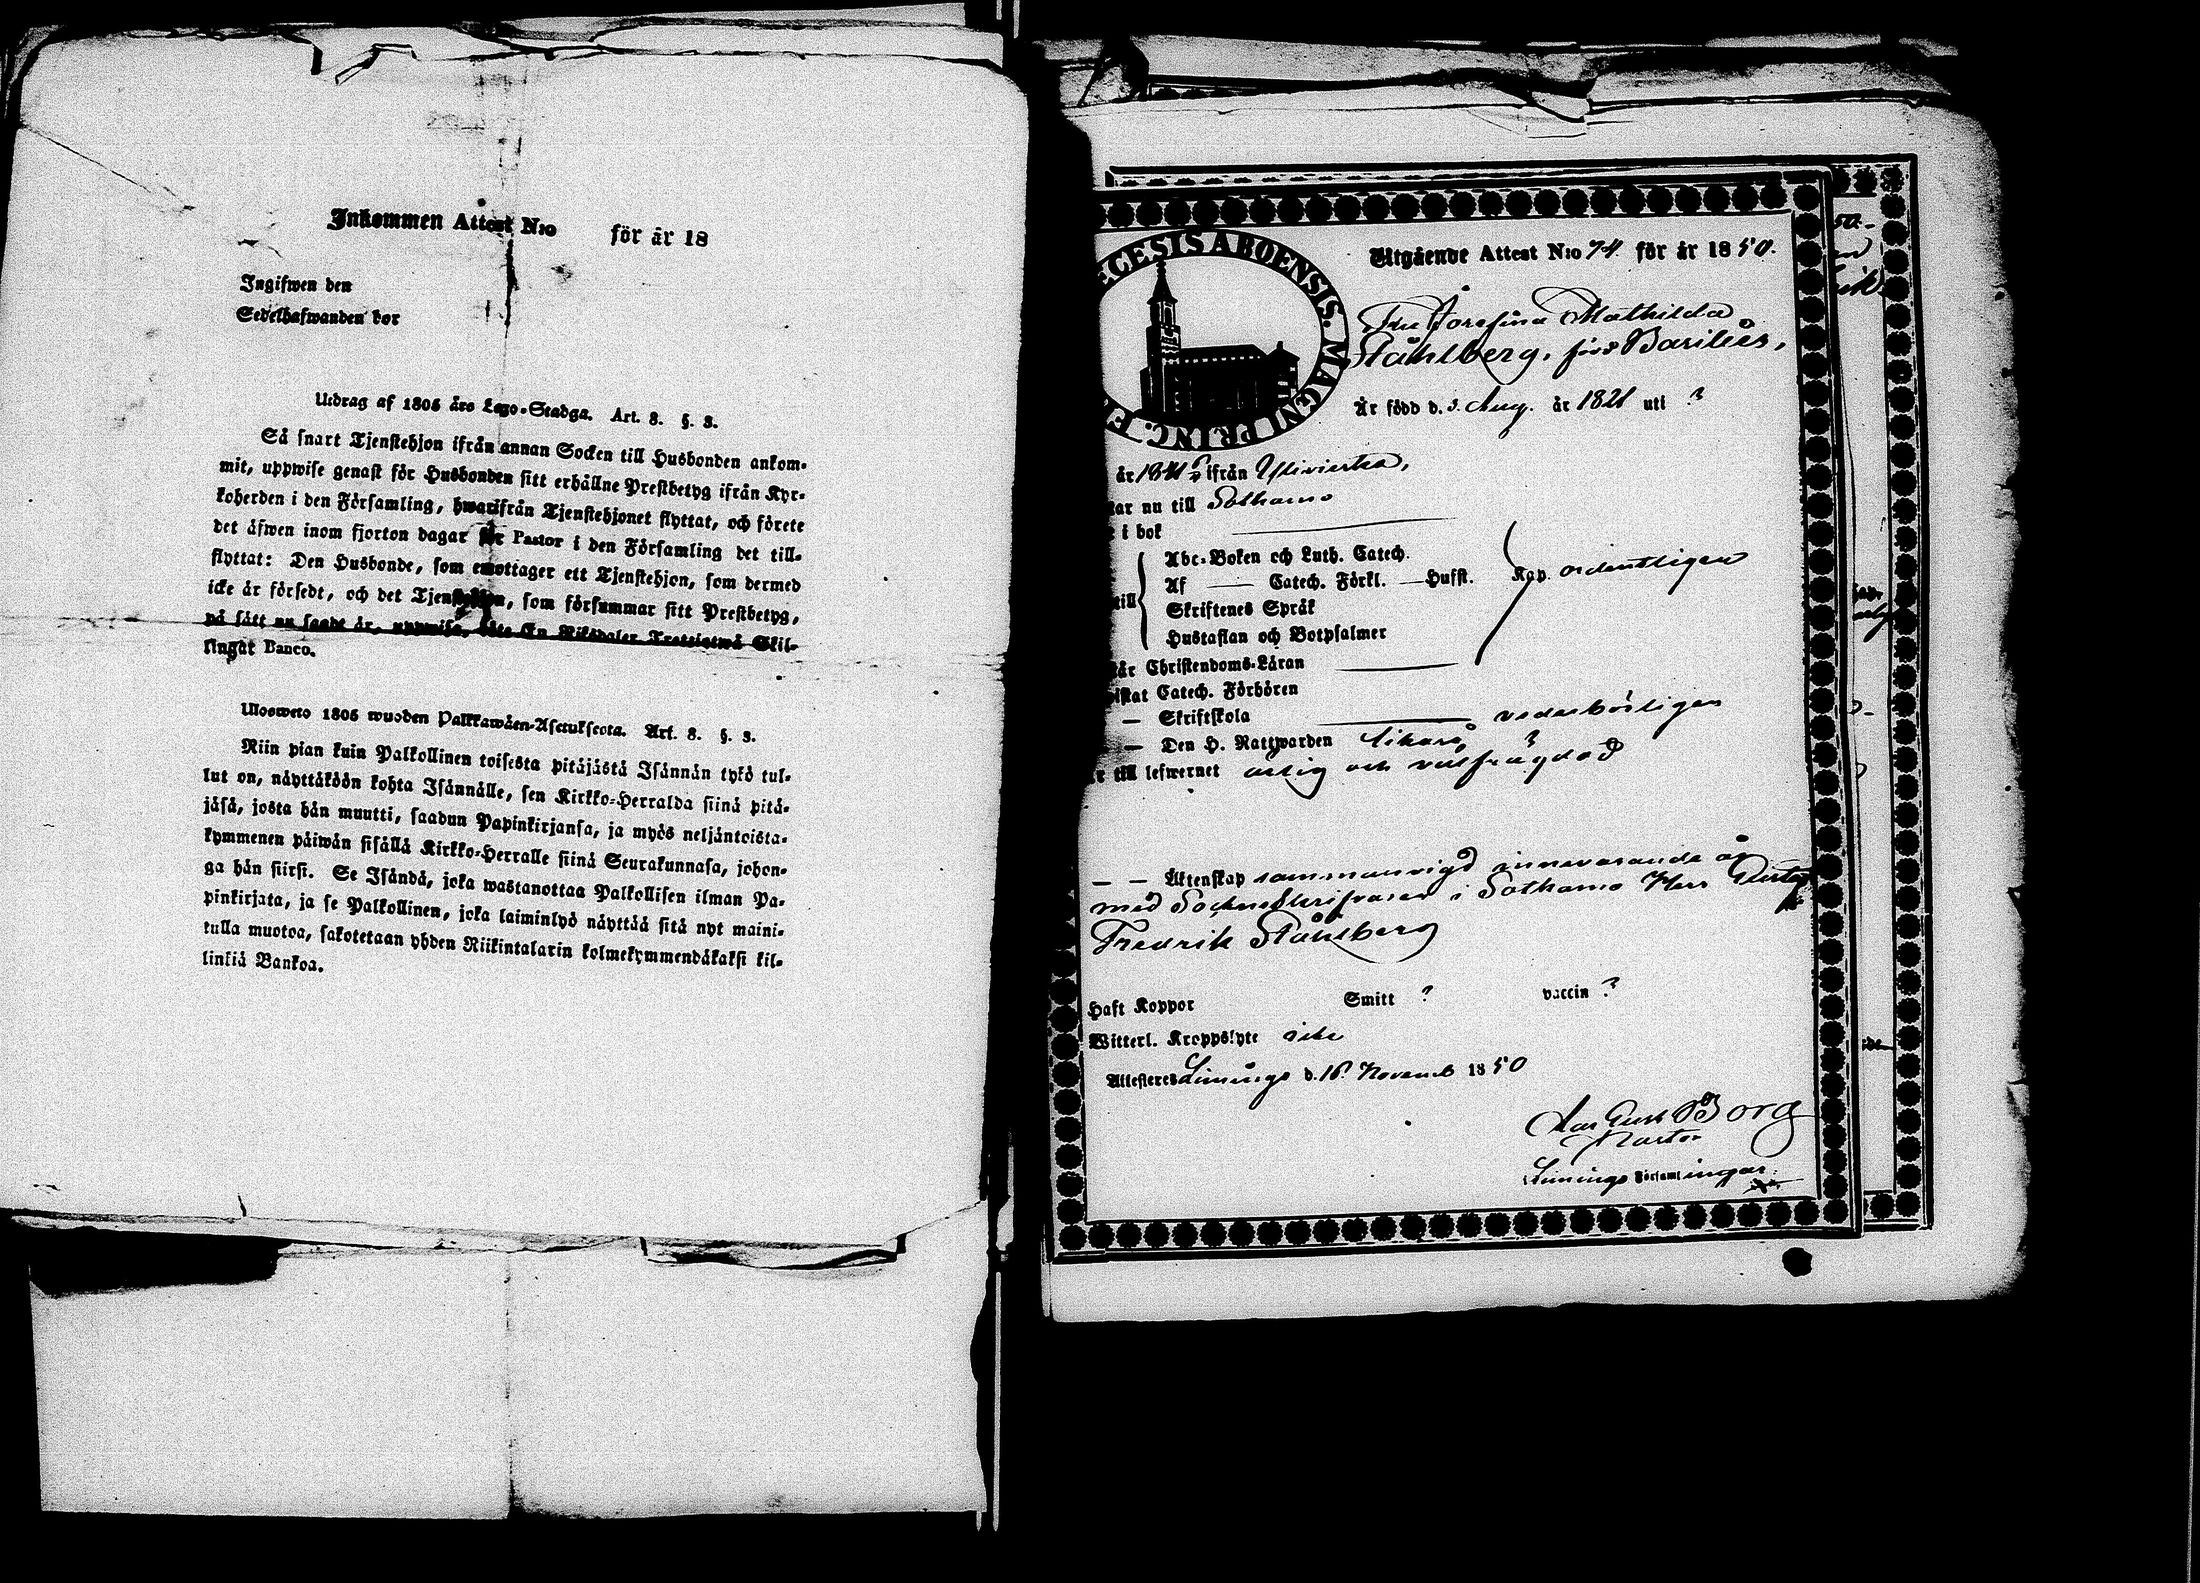 Inkommen Attest N:o för år 18
Ingifwen den
Sedelhafwanden bor
Utdrag af 1805 års Lego-Stadga. Art. 8. §. 3.
Så snart Tjenstehjon ifrån annan Socken till Husbonden ankom-
mit, uppwise genast för Husbonden sitt erhållne Prestbetyg ifrån Kyr-
koherden i den Församling, hwarifrån Tjenstehjonet flyttat, och förete
det äfwen inom fjorton dagar för Pastor i den Församling det till-
flyttat: Den Husbonde, som emottager ett Tjenstehjon, som dermed
icke är försedt, och det Tjenstehjon, som försummar sitt Prestbetyg,
på sätt nu sagdt är, uppwisa, böte En Riksdaler Trettiotwå Skil-
lingar Banco.
Ulosweto 1805 wuoden Palkkawäen-Asetuksesta. Art. 8. §. 3.
Niin pian kuin Palkollinen toisesta pitäjästä Isännän tykö tul-
lut on, näyttäköön kohta Isännälle, sen Kirkko-Herralda siinä pitä-
jäsä, josta hän muutti, saadun Papinkirjansa, ja myös neljäntoista-
kymmenen päiwän sisällä Kirkko-Herralle siinä Seurakunnasa, johon-
ga hän siirsi. Se Isändä, joka wastanottaa Palkollisen ilman Pa-
pinkirjata, ja se Palkollinen, joka laiminlyö näyttää sitä nyt maini-
tulla muotoa, sakotetaan yhden Riikintalarin kolmekymmendäkaksi kil-
linkiä Bankoa.
ECESIS ABOENSIS. MAGNI PRINC. F
Utgående Attest N:o 74 för år 1850.
Fru Josefina Mathilda
Ståhlberg, född Basiliér,
Är född d. 3. Aug. år 1821 uti ?
år 1841 ifrån Ylivieska,
tar nu till Sotkamo
i bok
till
Abc-Boken och Luth. Catech.
Af — Catech. Förkl. — Hufst. Kap. ordentligen
Skriftenes Språk
Hustaflan och Botpsalmer
tår Christendoms-Läran
istat Catech. Förhören
— Skriftskola — vederbörligen
— Den H. Nattwarden likaså,
r till lefwernet ärlig och välfrägdad
— — Äktenskap sammanvigd innevarande år
med Sockneskrifvaren i Sotkamo Herr
Fredrik Ståhlberg
Haft Koppor Smitt ? vaccin ?
Witterl. Kroppslyte icke
Attesteres Limingo d. 16. Novemb 1850
Borg
Pastor
Limingo Församl ingar.